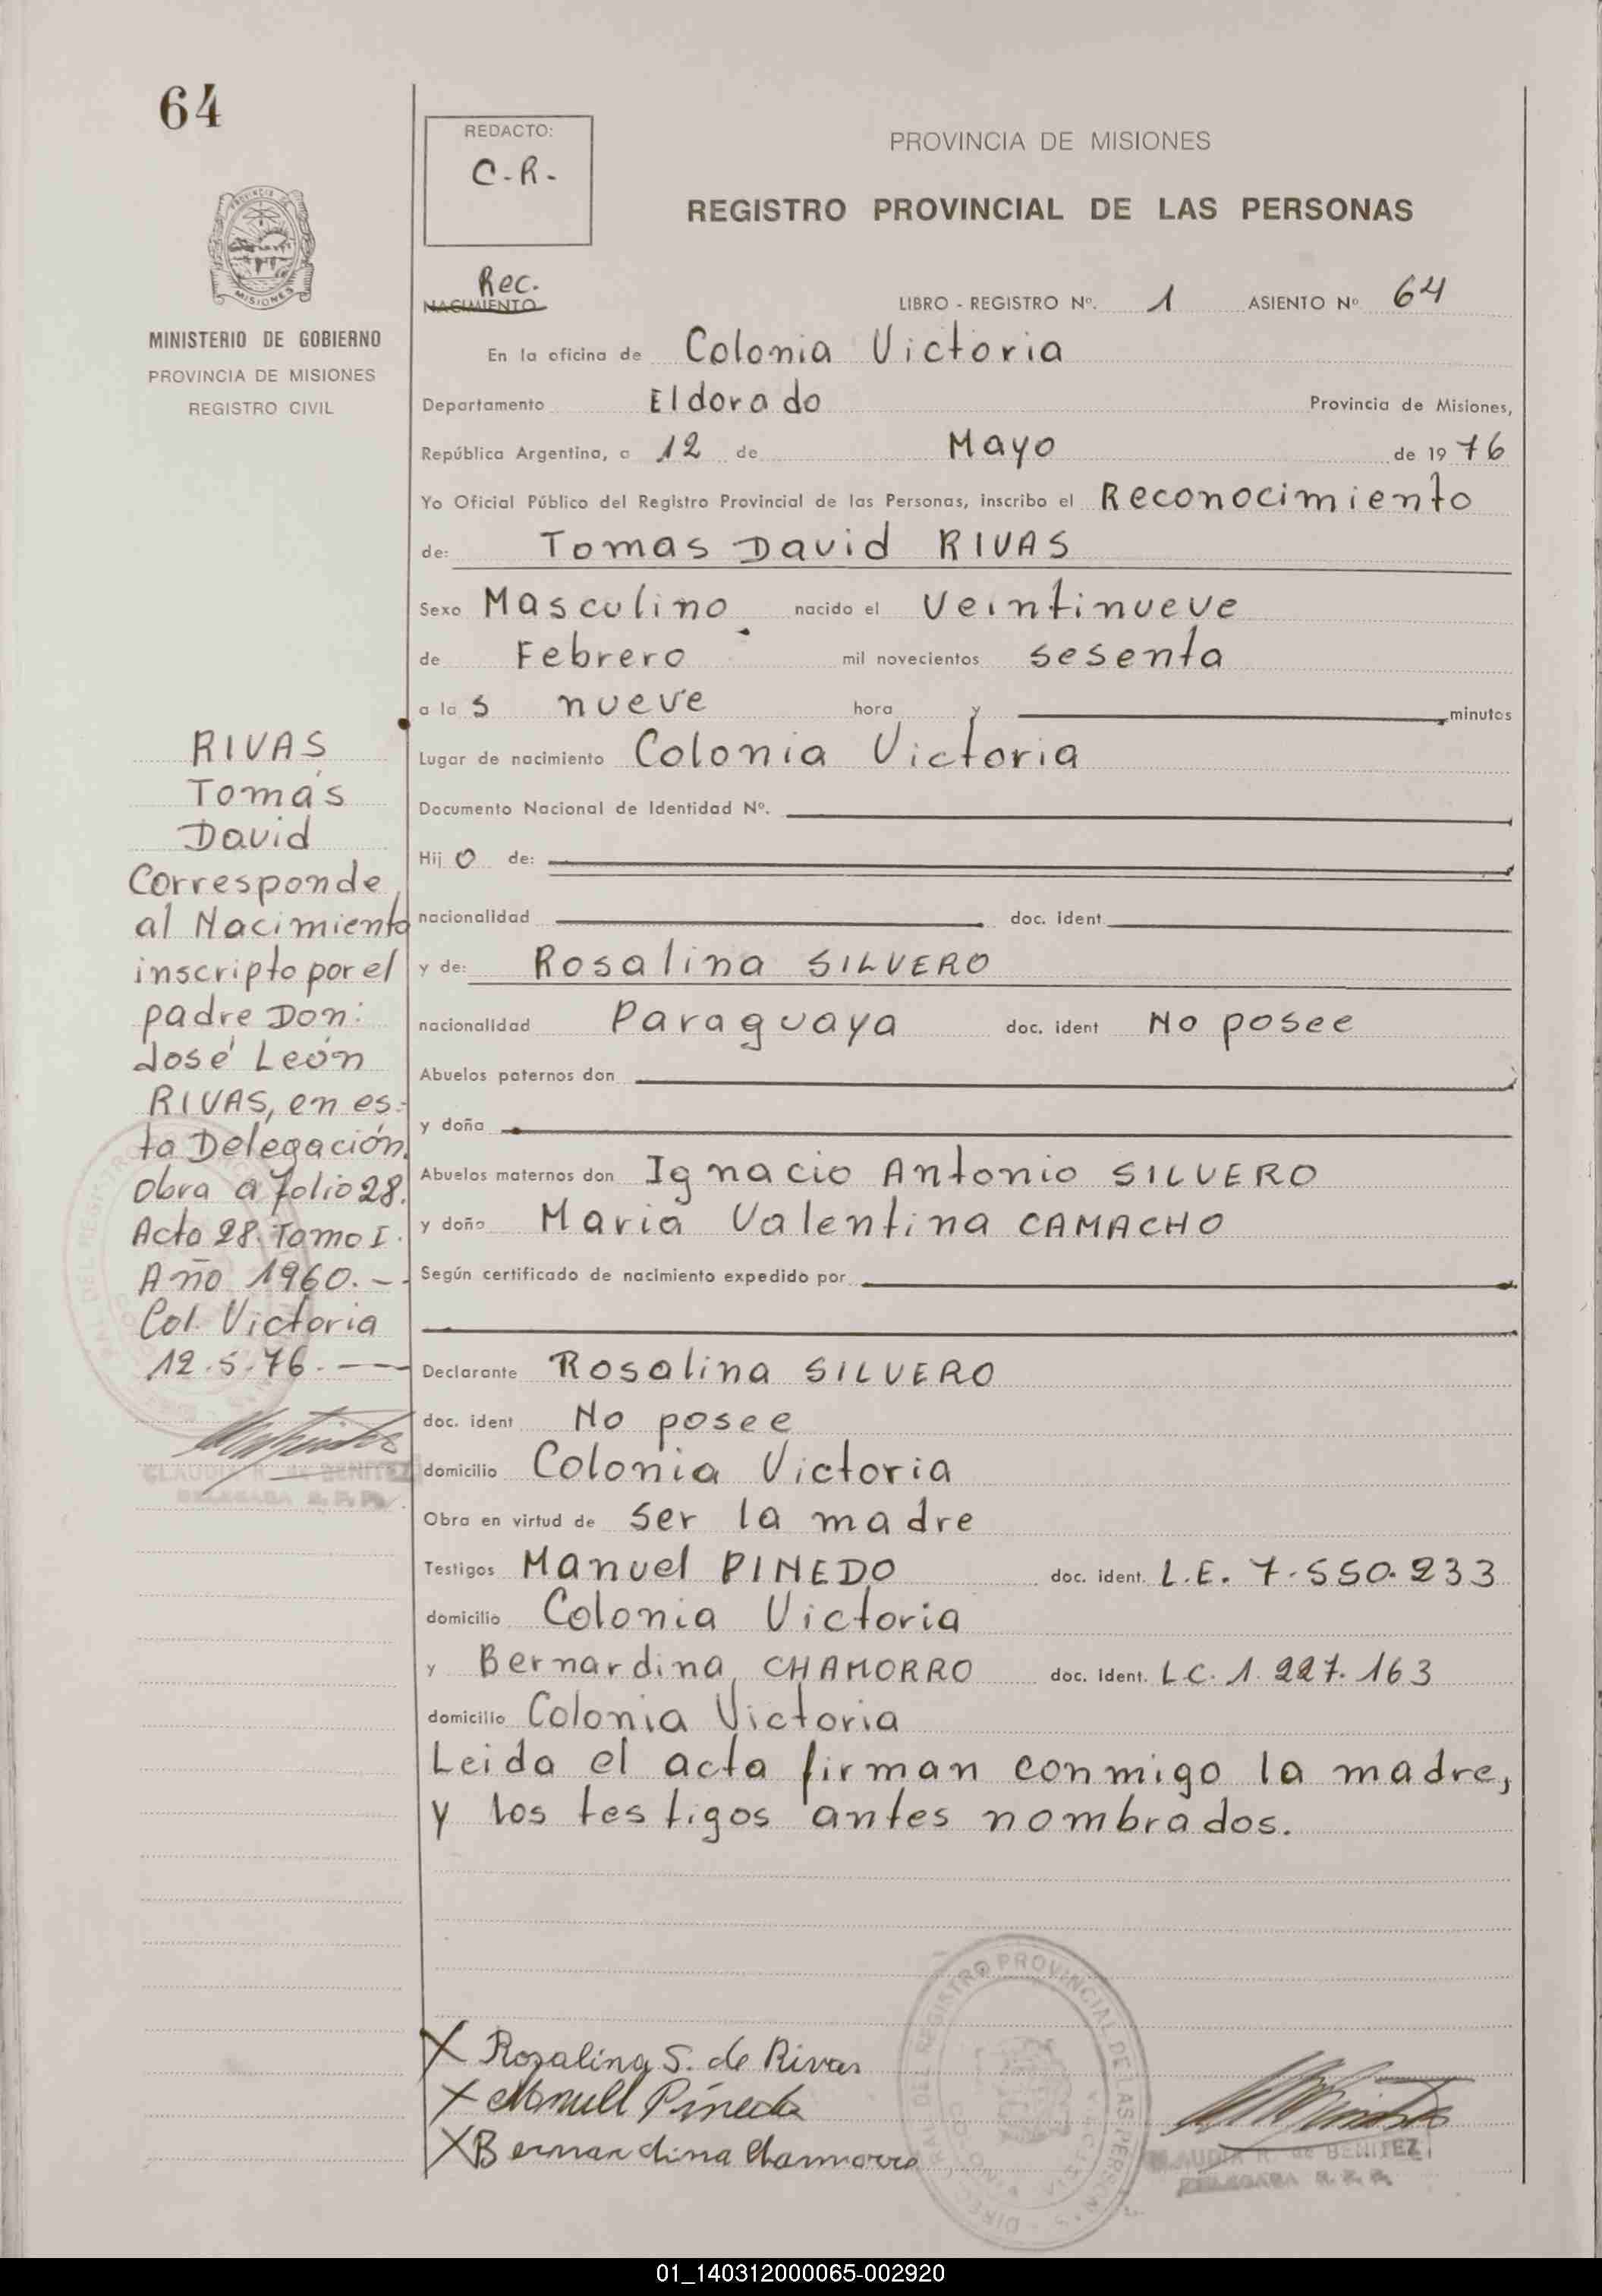 64
REDACTO:
C-R-
PROVINCIA DE MISIONES
REGISTRO PROVINCIAL DE LAS PERSONAS
MISIONES
MINISTERIO DE GOBIERNO
PROVINCIA DE MISIONES
REGISTRO CIVIL
Rec.
NACIMIENTO
LIBRO - REGISTRO Nº. 1 ASIENTO Nº 64
En la oficina de Colonia Victoria
Departamento Eldorado Provincia de Misiones,
República Argentina, a 12 de Mayo de 19 76
Yo Oficial Público del Registro Provincial de las Personas, inscribo el Reconocimiento
de: Tomas David RIVAS
Sexo Masculino nacido el Veintinueve
de Febrero mil novecientos sesenta
a la s nueve hora y minutos
Lugar de nacimiento Colonia Victoria
Documento Nacional de Identidad Nº.
Hij o de:
nacionalidad doc. ident
y de: Rosalina SILVERO
nacionalidad Paraguaya doc. ident No posee
Abuelos paternos don
y doña
Abuelos maternos don Ignacio Antonio SILVERO
y doña Maria Valentina CAMACHO
Según certificado de nacimiento expedido por
Declarante Rosalina SILVERO
doc. ident No posee
domicilio Colonia Victoria
Obra en virtud de ser la madre
Testigos Manuel PINEDO doc. ident. L.E. 7.550.233
domicilio Colonia Victoria
y Bernardina CHAMORRO doc. ident. L.C. 1.227.163
domicilio Colonia Victoria
Leida el acta firman conmigo la madre,
y los testigos antes nombrados.
RIVAS
Tomás
David
Corresponde
al Nacimiento
inscripto por el
padre Don:
José León
RIVAS, en es-
ta Delegación.
Obra a folio 28.
Acta 28. Tomo I.
Año 1960.-
Col. Victoria
12.5.76.
CLAUDIA R. de BENITEZ
DELEGADA R. P. P.
X Rosalina S. de Rivas
X Manuel Pinedo
X Bernardina Chamorro
CLAUDIA R. de BENITEZ
DELEGADA R. P. P.
01_140312000065-002920